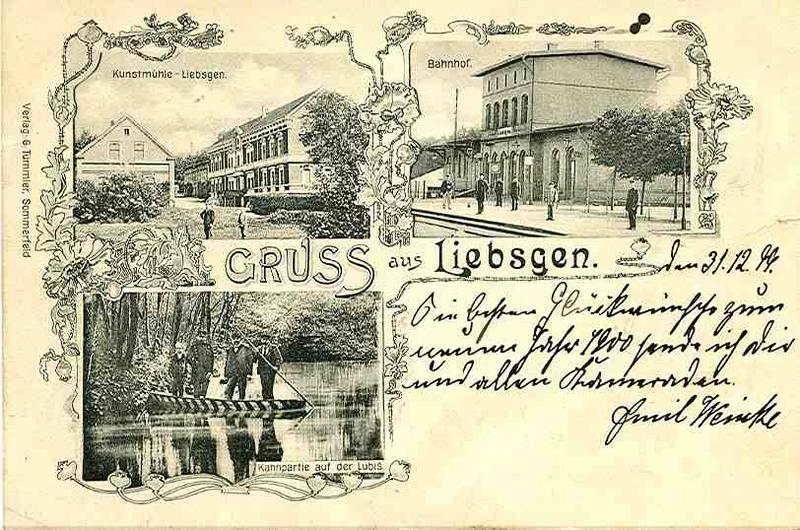 Kunstmühle - Liebsgen.
Bahnhof.
Verlag: G Tümmler, Sommerfeld
GRUSS aus Liebsgen.
den 31.12.99.
Die besten Glückwünsche zum
neuen Jahr 1900 sende ich Dir
und allen Kameraden.
Emil Weinke
Kahnpartie auf der Lubis